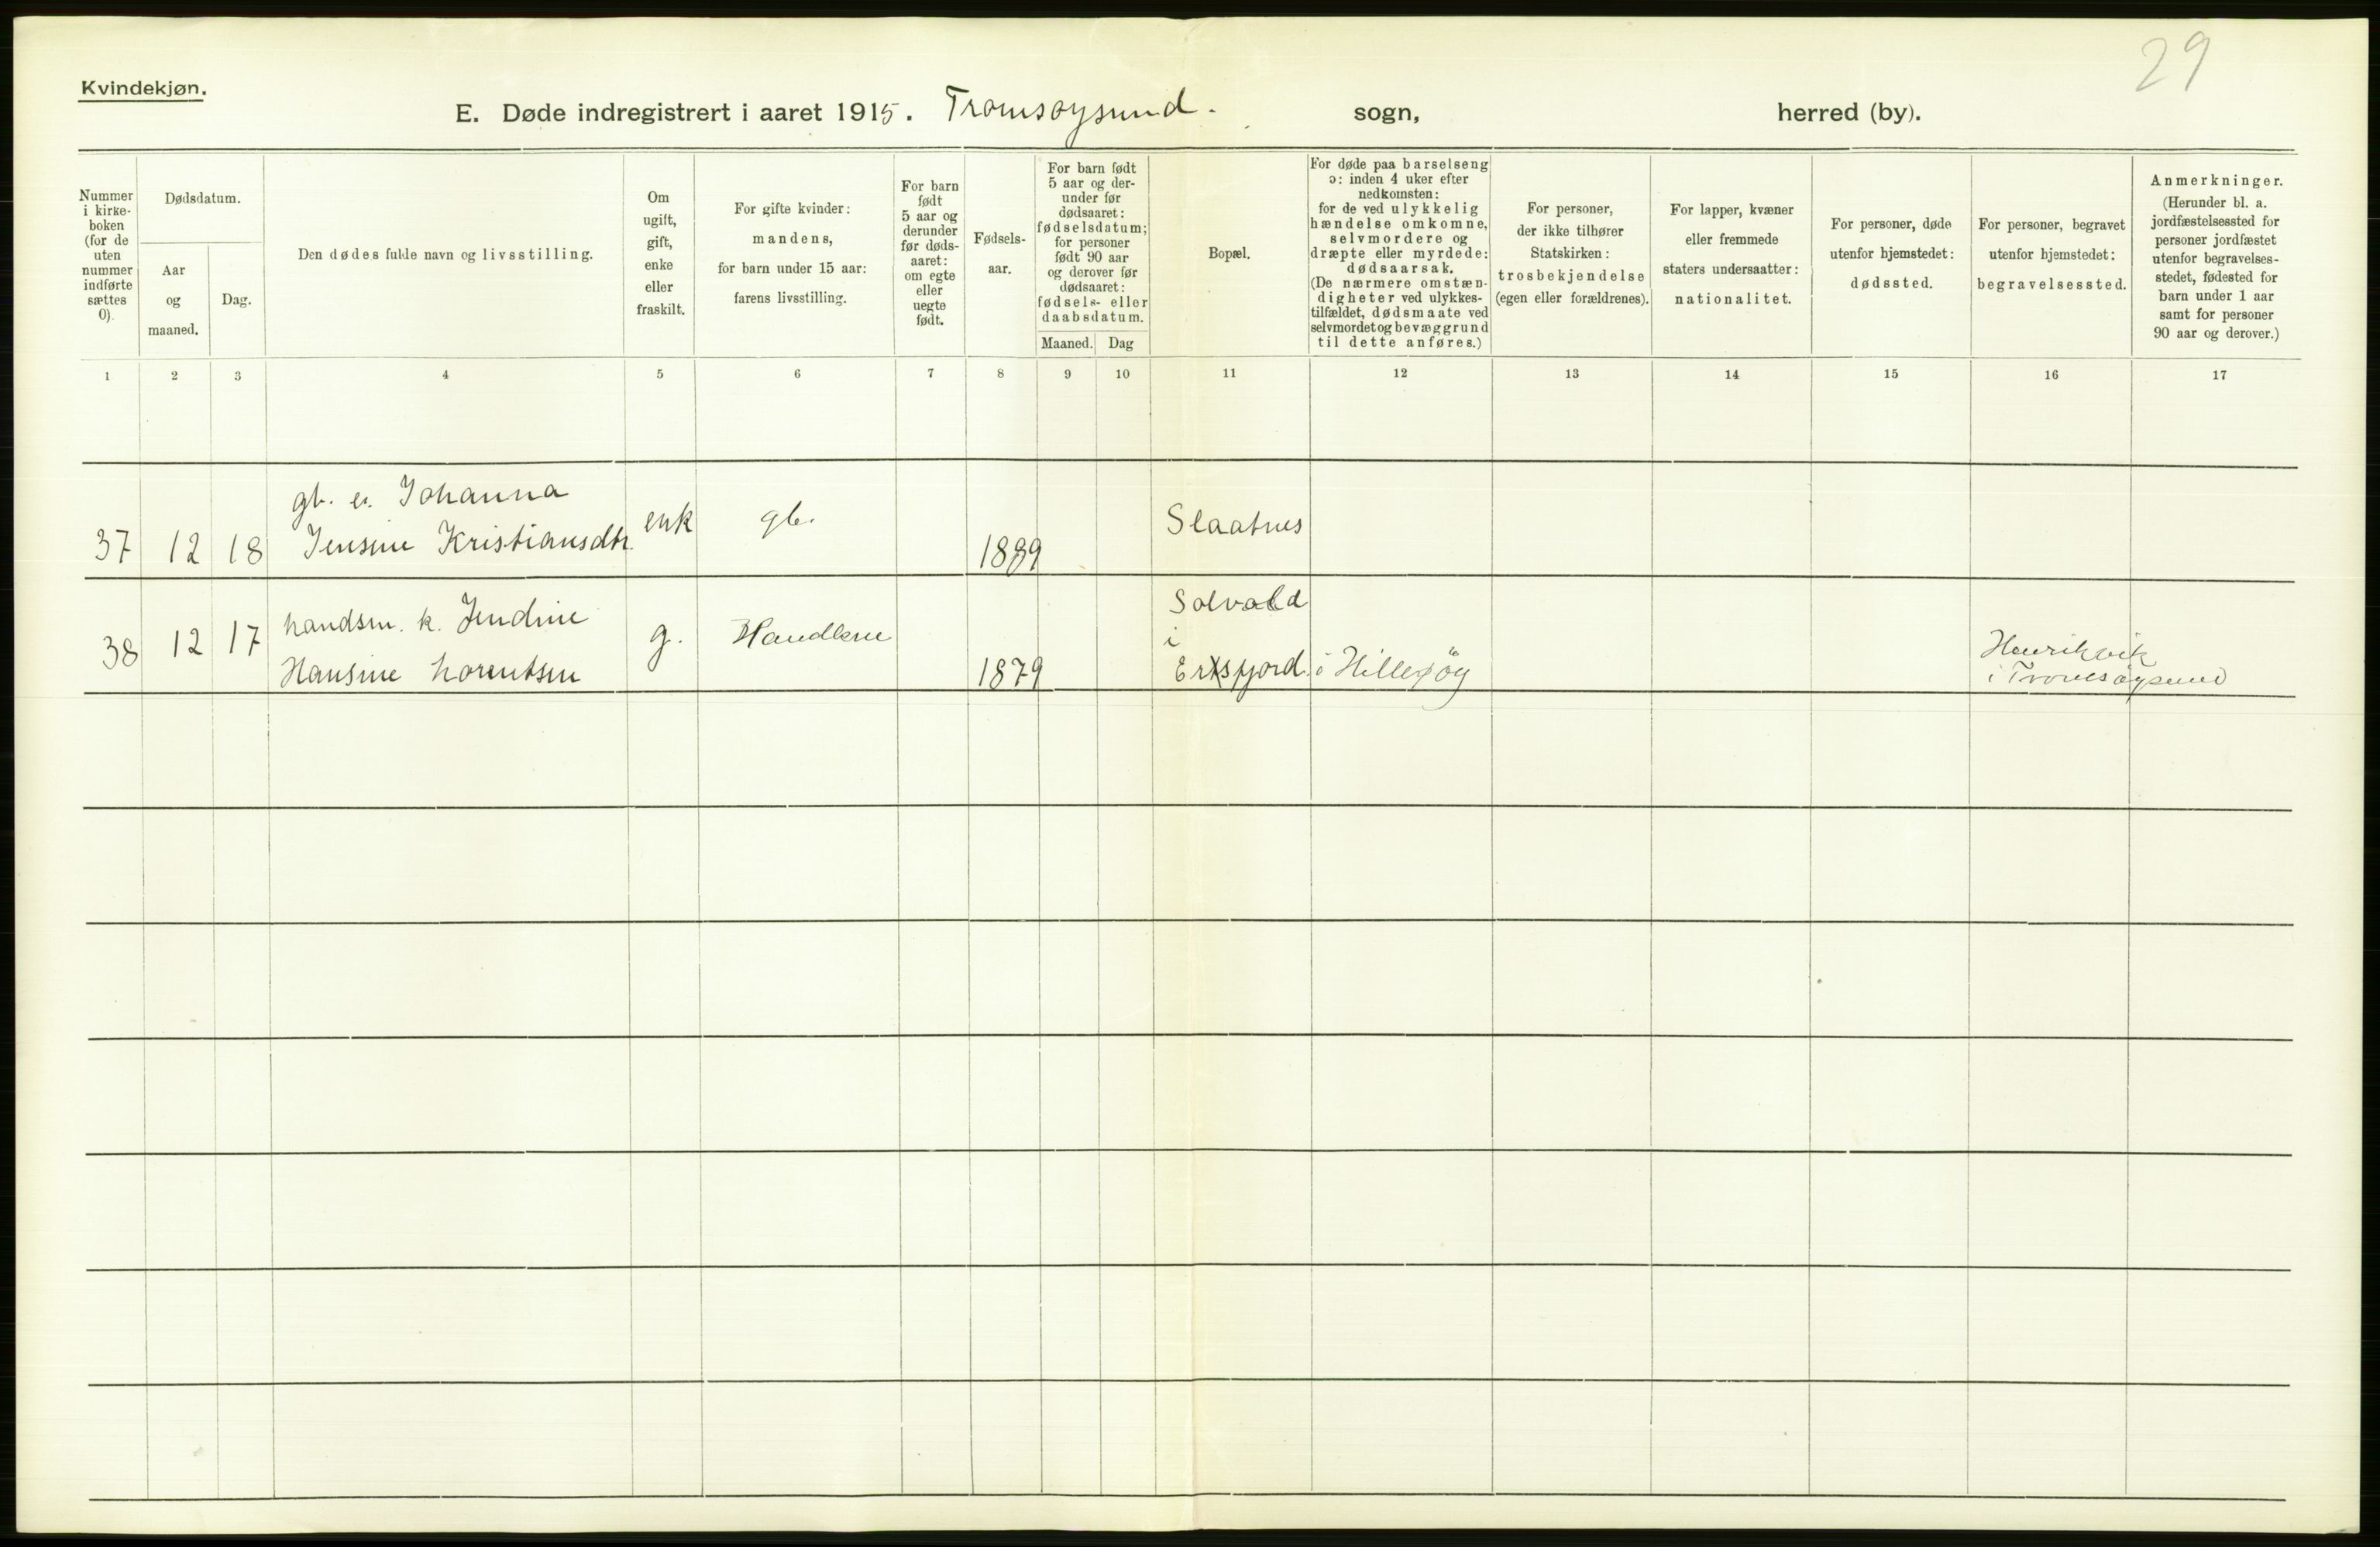 29
Kvindekjøn.
E. Døde indregistrert i aaret 1915. Tromsøysund. sogn, herred (by).
Nummer
i kirke-
boken
(for de
uten
nummer
indførte
sættes
0).
Dødsdatum.
Aar
og
maaned.
Dag.
Den dødes fulde navn og livsstilling.
Om
ugift,
gift,
enke
eller
fraskilt.
For gifte kvinder:
mandens,
for barn under 15 aar:
farens livsstilling.
For barn
født
5 aar og
derunder
før døds-
aaret:
om egte
eller
uegte
født.
Fødsels-
aar.
For barn født
5 aar og der-
under før
dødsaaret:
fødselsdatum;
for personer
født 90 aar
og derover før
dødsaaret:
fødsels- eller
daabsdatum.
Maaned. Dag
Bopæl.
For døde paa barselseng
ɔ: inden 4 uker efter
nedkomsten:
for de ved ulykkelig
hændelse omkomne,
selvmordere og
dræpte eller myrdede:
dødsaarsak.
(De nærmere omstæn-
digheter ved ulykkes-
tilfældet, dødsmaate ved
selvmordet og bevæggrund
til dette anføres.)
For personer,
der ikke tilhører
Statskirken:
trosbekjendelse
(egen eller forældrenes).
For lapper, kvæner
eller fremmede
staters undersaatter:
nationalitet.
For personer, døde
utenfor hjemstedet:
dødssted.
For personer, begravet
utenfor hjemstedet:
begravelsessted.
Anmerkninger.
(Herunder bl. a.
jordfæstelsessted for
personer jordfæstet
utenfor begravelses-
stedet, fødested for
barn under 1 aar
samt for personer
90 aar og derover.)
1 2 3 4 5 6 7 8 9 10 11 12 13 14 15 16 17
gb. e. Johanna
37 12 18 Jensine Kristiansdtr. enk gb. 1839 Slaatnes
handsm. k. Jendine Solvold
38 12 17 g. Handlesm i Henrikvik
Hansine Lorentsen 1879 Ersfjord i Hillesøy i Tromsøysund